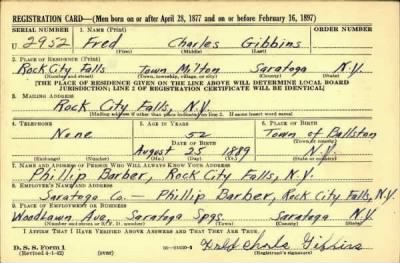 REGISTRATION CARD—(Men born on or after April 28, 1877 and on or before February 16, 1897)
SERIAL NUMBER 1. NAME (Print) ORDER NUMBER
U 2952 Fred Charles Gibbins
(First) (Middle) (Last)
2. PLACE OF RESIDENCE (Print)
Rock City Falls Town Milton Saratoga N.Y.
(Number and street) (Town, township, village, or city) (County) (State)
[THE PLACE OF RESIDENCE GIVEN ON THE LINE ABOVE WILL DETERMINE LOCAL BOARD
JURISDICTION; LINE 2 OF REGISTRATION CERTIFICATE WILL BE IDENTICAL]
3. MAILING ADDRESS
Rock City Falls, N.Y.
[Mailing address if other than place indicated on line 2. If same insert word same]
4. TELEPHONE 5. AGE IN YEARS 6. PLACE OF BIRTH
None 52 Town of Ballston
DATE OF BIRTH (Town or county)
August 25 1889 N.Y.
(Exchange) (Number) (Mo.) (Day) (Yr.) (State or country)
7. NAME AND ADDRESS OF PERSON WHO WILL ALWAYS KNOW YOUR ADDRESS
Phillip Barber, Rock City Falls, N.Y.
8. EMPLOYER'S NAME AND ADDRESS
Saratoga Co. — Phillip Barber, Rock City Falls, N.Y.
9. PLACE OF EMPLOYMENT OR BUSINESS
Woodlawn Ave, Saratoga Spgs. Saratoga N.Y.
(Number and street or R. F. D. number) (Town) (County) (State)
I AFFIRM THAT I HAVE VERIFIED ABOVE ANSWERS AND THAT THEY ARE TRUE.
D. S. S. Form 1
(Revised 4-1-42) (over) Fred Charles Gibbins
(Registrant's signature)